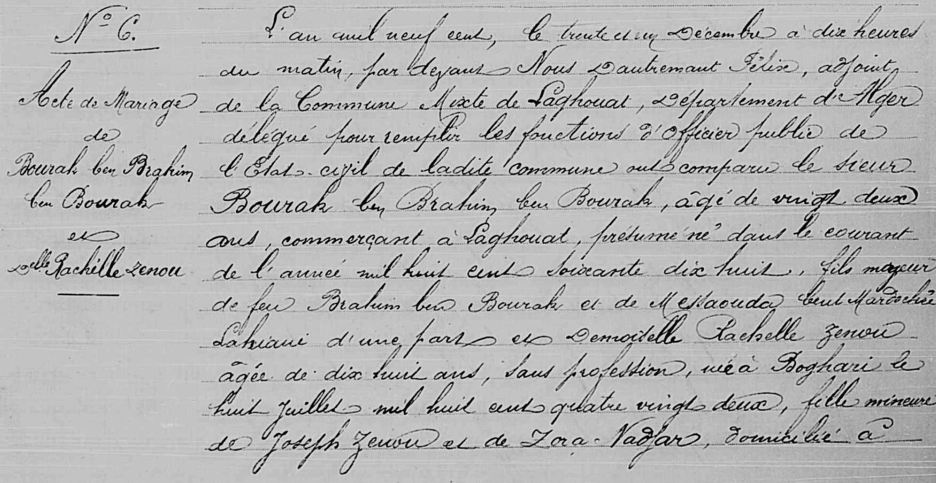 N° 6.
Acte de Mariage
de
Bourak ben Brahim
ben Bourak
et
Delle Rachelle Zenou
L'an mil neuf cent, le trente et un Décembre à dix heures
du matin, par devant Nous Dautremant Félix, adjoint
de la Commune Mixte de Laghouat, Département d'Alger
délégué pour remplir les fonctions d'Officier public de
l'Etat-civil de ladite commune ont comparu le sieur
Bourak ben Brahim ben Bourak, âgé de vingt deux
ans, commerçant à Laghouat, présumé né dans le courant
de l'année mil huit cent soixante dix huit, fils majeur
de feu Brahim ben Bourak et de Messaouda bent Mardochée
Lahiani d'une part et Demoiselle Rachelle Zenou
âgée de dix huit ans, sans profession, née à Boghari le
huit Juillet mil huit cent quatre vingt deux, fille mineure
de Joseph Zenou et de Zora Nadjar, domicilié à